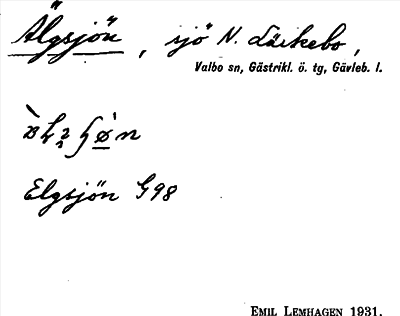 Älgsjön, sjö N. Läckebo,
Valbo sn, Gästrikl. ö. tg, Gävleb. l.
Elgsjön G98
EMIL LEMHAGEN 1931.